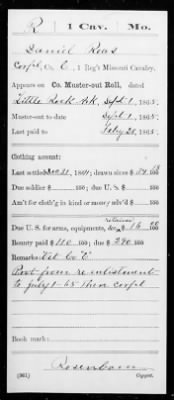 R 1 Cav. Mo.
Daniel Roas
Corp'l, Co. C, 1 Reg't Missouri Cavalry.
Appears on Co. Muster-out Roll, dated
Little Rock Ark, Sept 1, 1865.
Muster-out to date Sept 1, 1865.
Last paid to Feby 28, 1865.
Clothing account:
Last settled Dec 31, 1864; drawn since $
Due soldier $ 100; due U. S. $ 100
Am't for cloth'g in kind or money adv'd $ 100
retained
Due U. S. for arms, equipments, &c., $ 16 00
Bounty paid $ 100; due $ 290 100
Remarks: Vet Co "C"
Pvt from re enlistment
to July 1-65 then corpl
Book mark:
Rosenbaum
(361) Copyist.